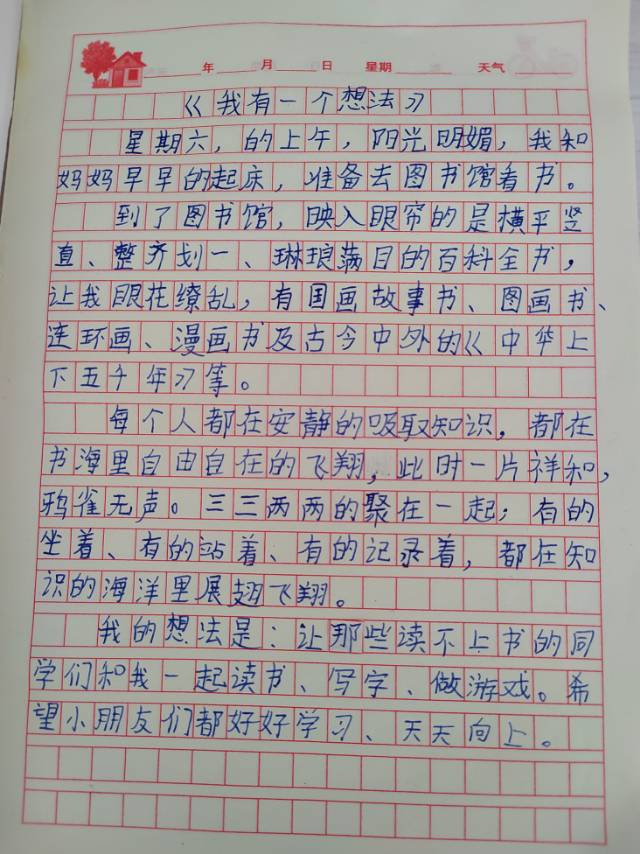 年 月 日 星期 天气
《我有一个想法》
星期六，的上午，阳光明媚，我和
妈妈早早的起床，准备去图书馆看书。
到了图书馆，映入眼帘的是横平竖
直、整齐划一、琳琅满目的百科全书，
让我眼花缭乱，有国画故事书、图画书、
连环画、漫画书及古今中外的《中华上
下五千年》等。
每个人都在安静的吸取知识，都在
书海里自由自在的飞翔，此时一片祥和，
鸦雀无声。三三两两的聚在一起；有的
坐着、有的站着、有的记录着，都在知
识的海洋里展翅飞翔。
我的想法是：让那些读不上书的同
学们和我一起读书、写字、做游戏。希
望小朋友们都好好学习、天天向上。